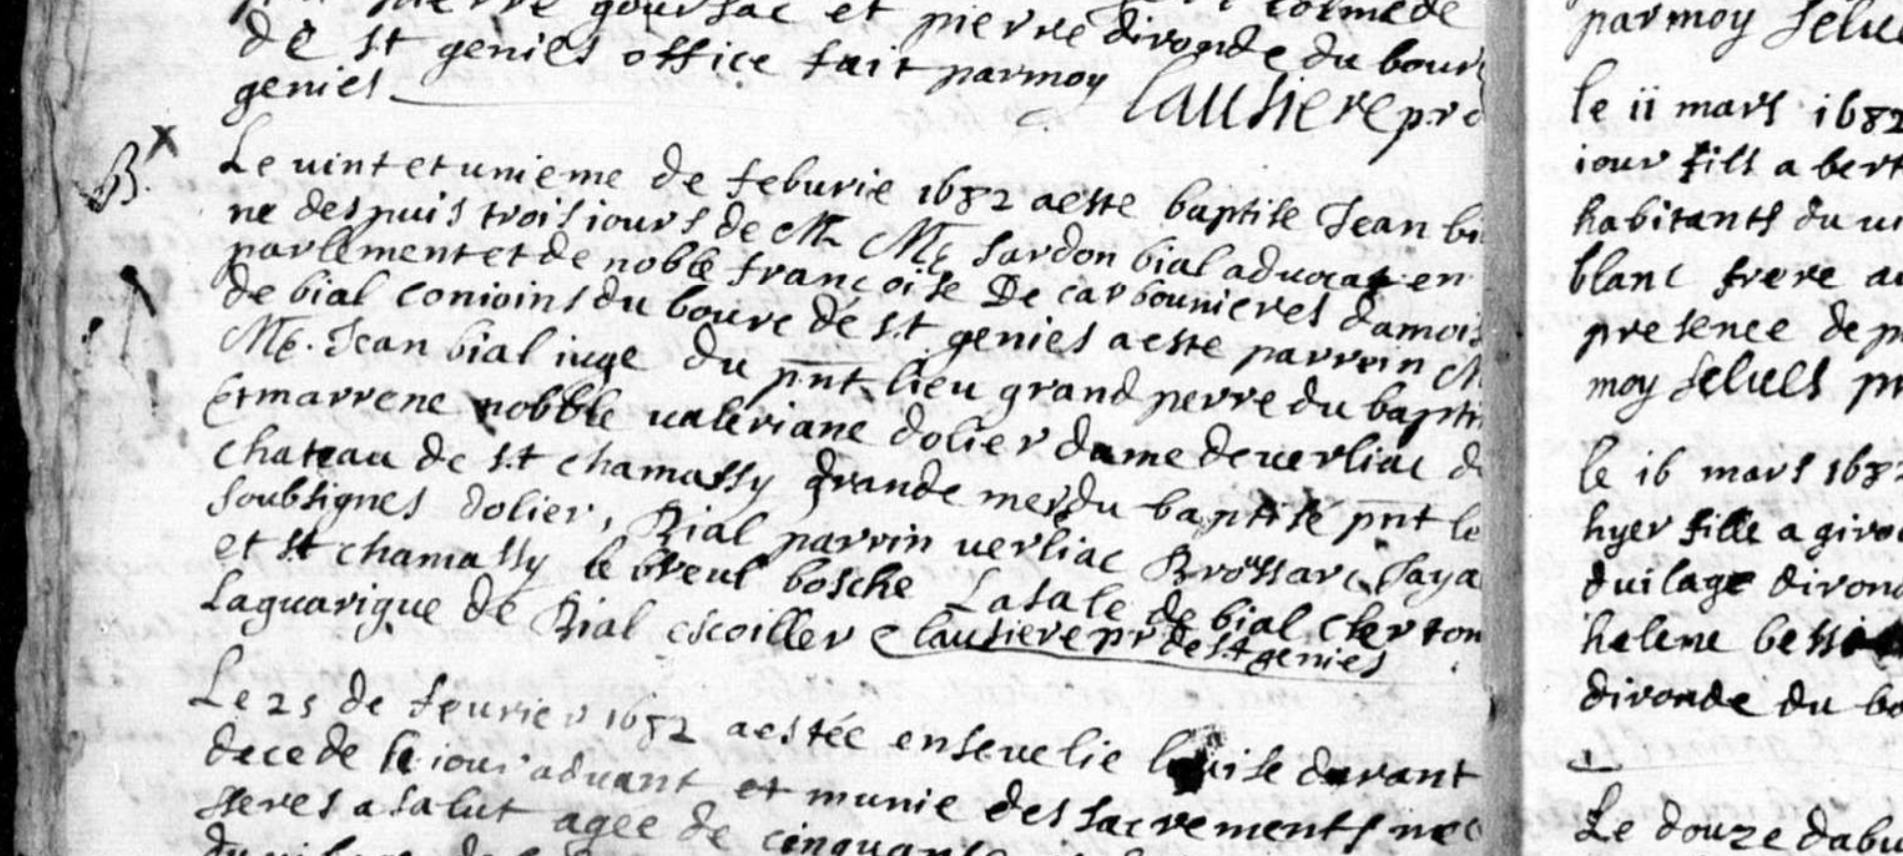 pierre goursac et pierre dironde du bour
de st genies office fait parmoy
genies Lausiere pr
B x
Le uint et unieme de feburie 1682 aeste baptise Jean bi
ne despuis trois iours de Mr Me Sardon bial aduocat en
parlement et de noble francoise De carbounieres damois
de bial conioins du bourc de st genies aeste parrein M
Me. Jean bial iuge du pnt lieu grand perre du bapti
Et marrene nobble ualeriane dolier dame deuerliac d
chateau de st chamassy grande mer du baptise pnt le
soubsignes dolier, Bial parrin uerliac Brossard Saya
et st chamassy le breul bosche Lasale de bial Clerton
Laguarigue de Bial escoiller Lausiere pr de st genies
Le 25 de feurier 1682 aestée enseuelie louise durant
decede le iour aduant et munie des sacrements nec
seres a salut agee de cinquante
du uilage
parmoy Selue
le ii mars 1682
iour fils a bert
habitants du ui
blanc frere a
presence de p
moy Selues pr
le 16 mars 1682
hyer fille a giro
duilage diron
helene bess
dironde du bo
Le douze dabu